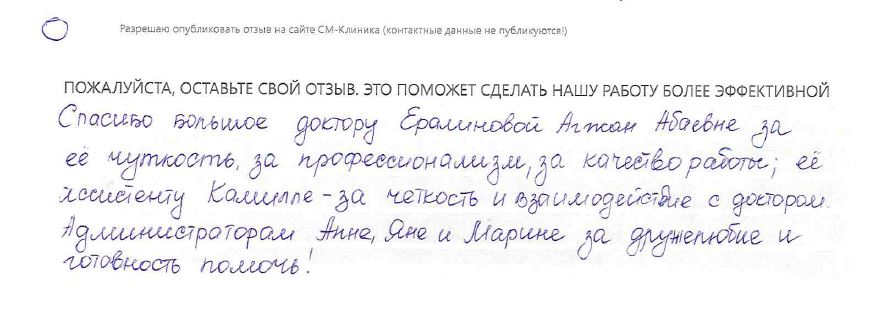 Разрешаю опубликовать отзыв на сайте СМ-Клиника (контактные данные не публикуются!)
ПОЖАЛУЙСТА, ОСТАВЬТЕ СВОЙ ОТЗЫВ. ЭТО ПОМОЖЕТ СДЕЛАТЬ НАШУ РАБОТУ БОЛЕЕ ЭФФЕКТИВНОЙ
Спасибо большое доктору Ералиновой Агжан Абаевне за
её чуткость, за профессионализм, за качество работы; её
ассистенту Камилле - за четкость и взаимодействие с доктором.
Администраторам Анне, Яне и Марине за дружелюбие и
готовность помочь!